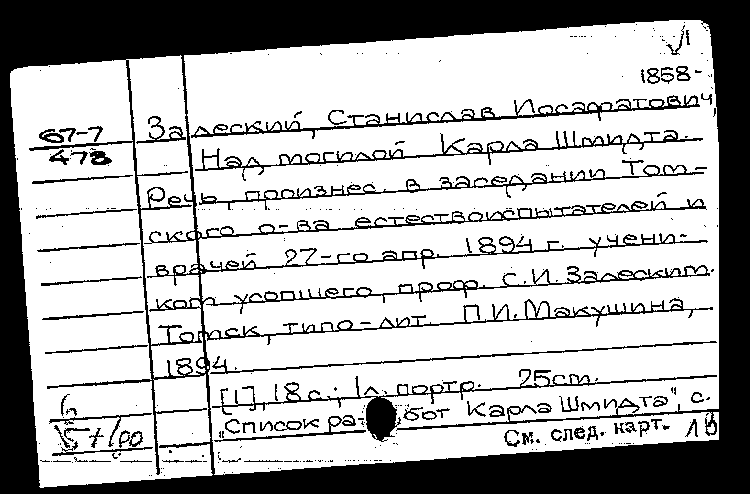 1858-
67-7 Залеский, Станислав Иосафатович
478 Над могилой Карла Шмидта.
Речь, произнес. в заседании Том-
ского о-ва естествоиспытателей и
врачей 27-го апр. 1894 г. учени-
ком усопшего, проф. С.И. Залеским.
Томск, типо-лит. П.И. Макушина,
1894.
[1], 18 с.; 1 л. портр. 25 cm.
"Список работ Карла Шмидта", с.
См. след. карт.